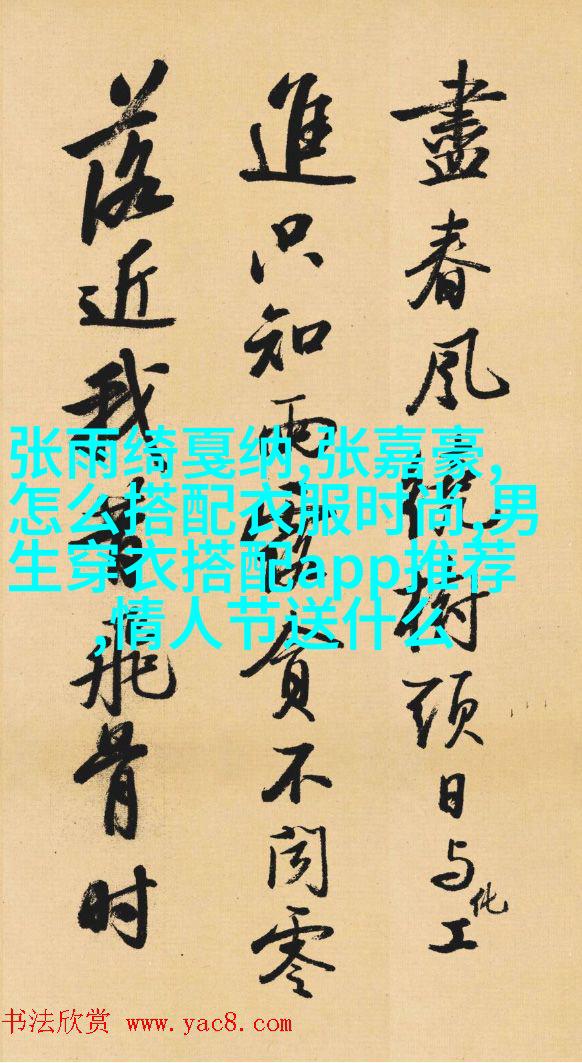 盡春風繞樹頭日与化工
進只知雨露貪不聞零
落近我昔飛骨时
张雨绮戛纳,张嘉豪,
怎么搭配衣服时尚,男
生穿衣搭配app推荐
,情人节送什么
书法欣赏 www.yac8.com